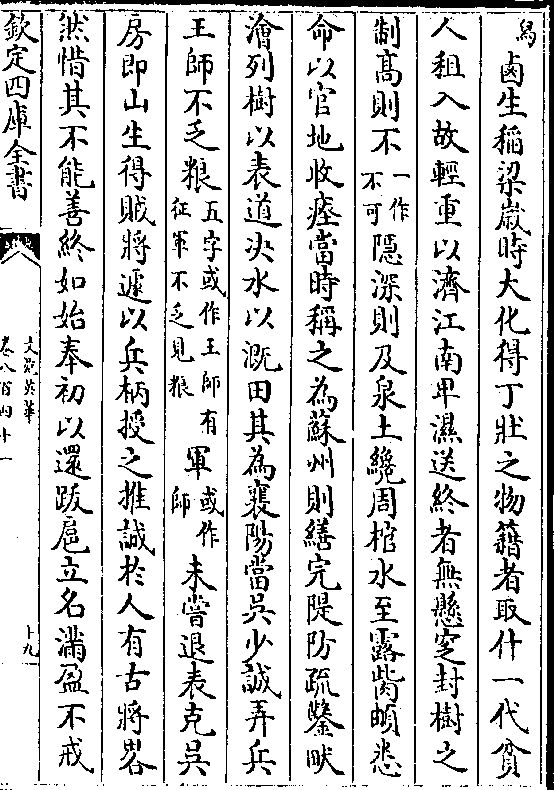 舄鹵生稻粱歲時大化得丁壯之物籍者取什一代貧
人租入故輕重以濟江南卑濕送終者無懸窆封樹之
制高則不一作不可隱深則及泉土纔周棺水至露胔頔悉
命以官地收瘞當時稱之為蘇州則繕完隄防疏鑿畎
澮列樹以表道決水以溉田其為襄陽當吳少誠弄兵
王師不乏粮五字或作王師有征軍不乏見粮軍或作師未嘗退表克吳
房即山生得賊將遽以兵柄授之推誠於人有古將畧
然惜其不能善終如始奉初以還跋扈立名滿盈不戒
欽定四庫全書
文苑英華
卷八百四十一
十九